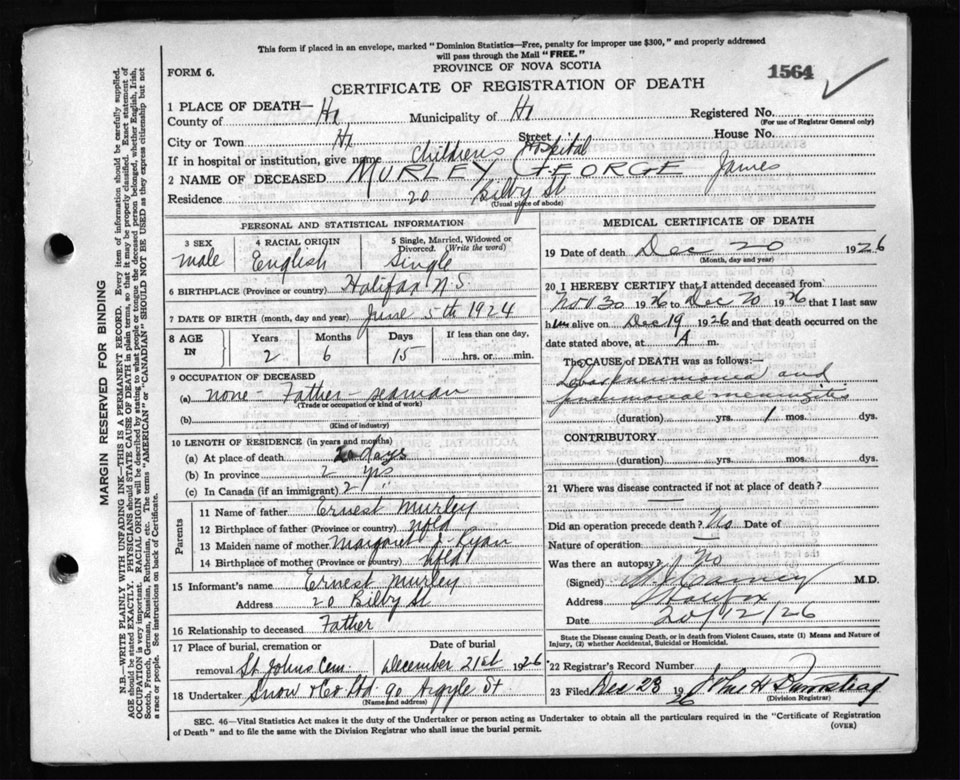 This form if placed in an envelope, marked "Dominion Statistics—Free, penalty for improper use $300," and properly addressed
will pass through the Mail "FREE."
FORM 6.
PROVINCE OF NOVA SCOTIA
1564
CERTIFICATE OF REGISTRATION OF DEATH
1 PLACE OF DEATH—
County of Hx Municipality of Hx Registered No.
(For use of Registrar General only)
City or Town Hx Street House No.
If in hospital or institution, give name Childrens Hospital
2 NAME OF DECEASED MURLEY GEORGE James
Residence 20 Bilby St
(Usual place of abode)
PERSONAL AND STATISTICAL INFORMATION
3 SEX 4 RACIAL ORIGIN 5 Single, Married, Widowed or Divorced. (Write the word)
male English Single
6 BIRTHPLACE (Province or country) Halifax N.S.
7 DATE OF BIRTH (month, day and year) June 5th 1924
8 AGE IN Years Months Days If less than one day,
2 6 15 hrs. or min.
9 OCCUPATION OF DECEASED
(a) none - Father - seaman
(Trade or occupation or kind of work)
(b)
(Kind of industry)
10 LENGTH OF RESIDENCE (in years and months)
(a) At place of death days
(b) In province 2 yrs
(c) In Canada (if an immigrant) 2 "
Parents
11 Name of father Ernest Murley
12 Birthplace of father (Province or country) Nfld
13 Maiden name of mother Margaret Ryan
14 Birthplace of mother (Province or country) Nfld
15 Informant's name Ernest Murley
Address 20 Bilby St
16 Relationship to deceased Father
17 Place of burial, cremation or Date of burial
removal St. Johns Cem. December 21st 1926
18 Undertaker Snow & Co Ltd 90 Argyle St
(Name and address)
MEDICAL CERTIFICATE OF DEATH
19 Date of death Dec 20 1926
(Month, day and year)
20 I HEREBY CERTIFY that I attended deceased from
Nov 30 1926 to Dec 20 1926 that I last saw
him alive on Dec 19 1926 and that death occurred on the
date stated above, at A m.
The CAUSE OF DEATH was as follows:—
Lobar Pneumonia and
pneumococcal meningitis
(duration) yrs. 1 mos. dys.
CONTRIBUTORY
(duration) yrs. mos. dys.
21 Where was disease contracted if not at place of death?
Did an operation precede death? No Date of
Nature of operation
Was there an autopsy? No
(Signed) M.D.
Address Halifax
Date 20/12/26
State the Disease causing Death, or in death from Violent Causes, state (1) Means and Nature of
Injury, (2) whether Accidental, Suicidal or Homicidal.
22 Registrar's Record Number
23 Filed Dec 23 1926 John H
(Division Registrar)
SEC. 46—Vital Statistics Act makes it the duty of the Undertaker or person acting as Undertaker to obtain all the particulars required in the "Certificate of Registration
of Death" and to file the same with the Division Registrar who shall issue the burial permit.
(OVER)
MARGIN RESERVED FOR BINDING
N.B.—WRITE PLAINLY WITH UNFADING INK—THIS IS A PERMANENT RECORD. Every item of information should be carefully supplied.
AGE should be stated EXACTLY. PHYSICIANS should STATE CAUSE OF DEATH in plain terms, so that it may be properly classified. Exact statement of
OCCUPATION is very important. RACIAL ORIGIN will be described by stating to what people or tongue the deceased person belonged, whether English, Irish,
Scotch, French, German, Russian, Ruthenian, etc. The terms "AMERICAN" or "CANADIAN" SHOULD NOT BE USED as they express citizenship but not
a race or people. See instructions on back of Certificate.